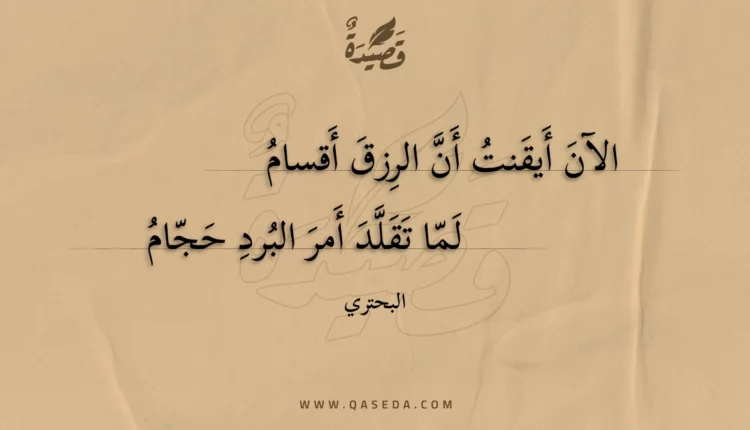 قصيدة
الآنَ أَيقَنتُ أَنَّ الرِزقَ أَقسامُ
لَمّا تَقَلَّدَ أَمرَ البُردِ حَجّامُ
البحتري
WWW.QASEDA.COM